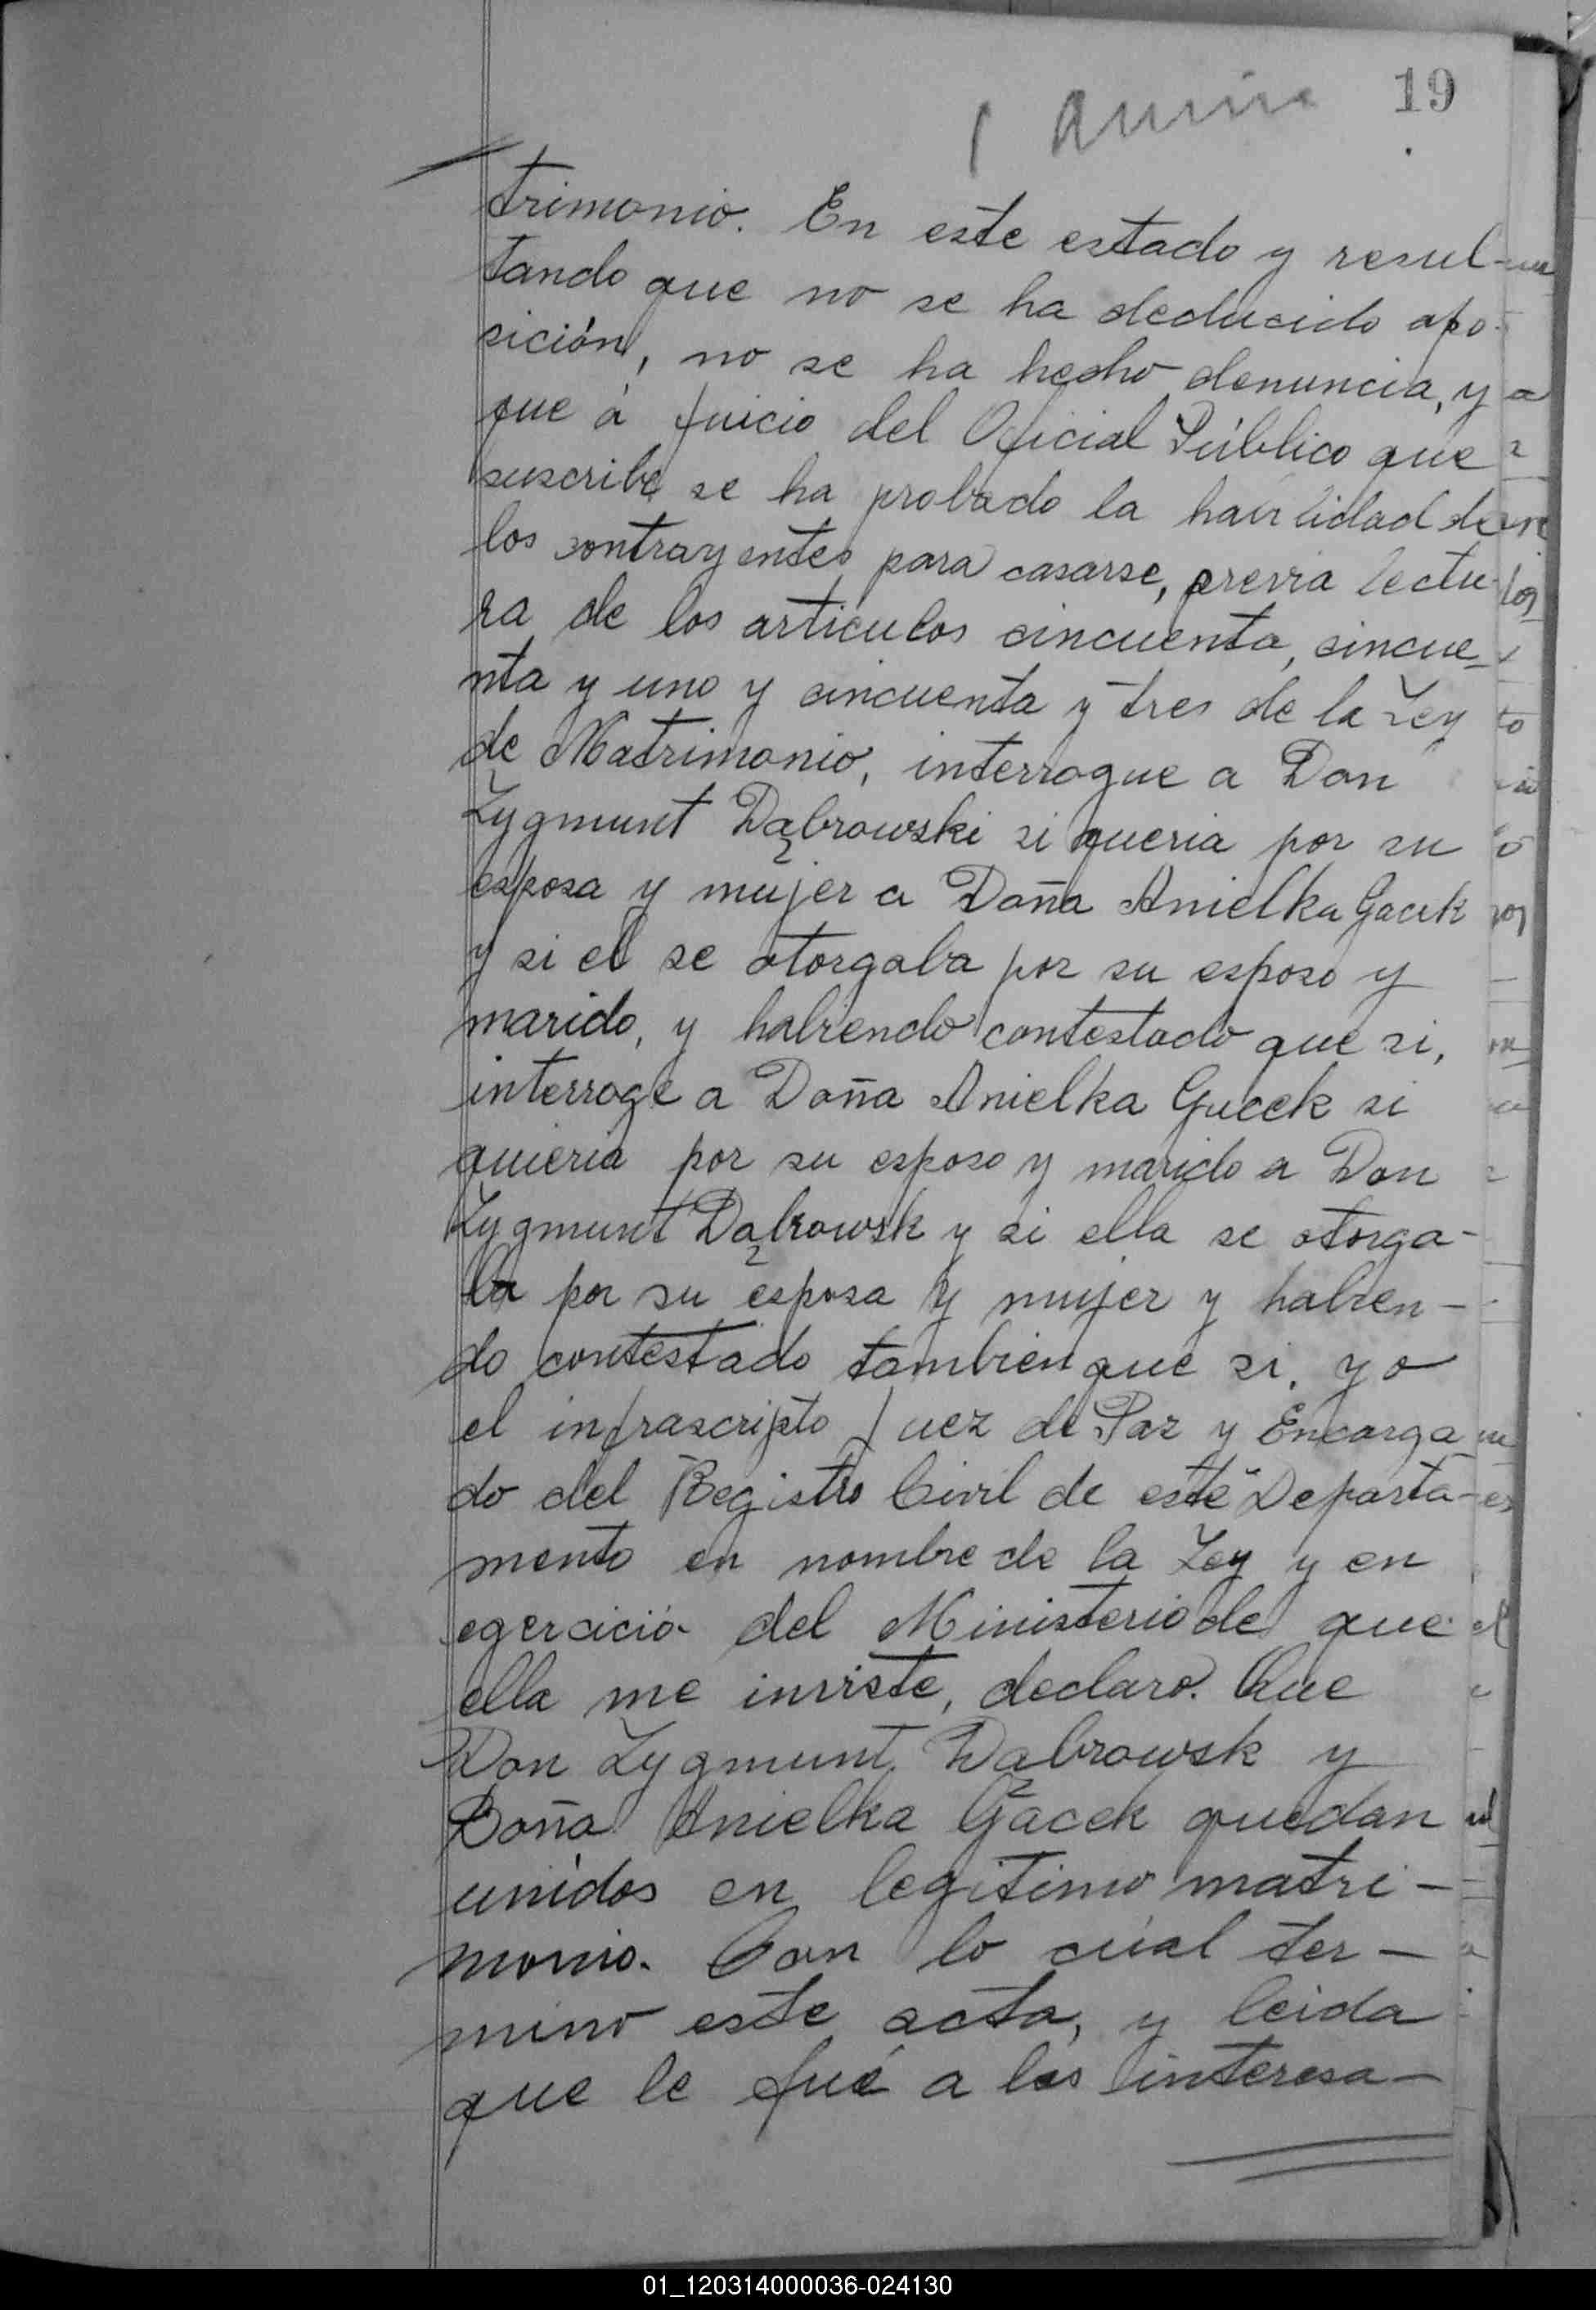 19
trimonio. En este estado y resul-
tando que no se ha deducido opo-
sición, no se ha hecho denuncia, y
que á juicio del Oficial Público que
suscribe se ha probado la habilidad de
los contrayentes para casarse, previa lectu-
ra de los articulos cincuenta, cincue-
nta y uno y cincuenta y tres de la Ley
de Matrimonio, interrogue a Don
Zygmunt Dąbrowski si queria por su
esposa y mujer a Doña Anielka Gacek
y si el se otorgaba por su esposo y
marido, y habiendo contestado que si,
interroge a Doña Anielka Gucek si
quieria por su esposo y marido a Don
Zygmunt Dąbrowsk y si ella se otorga-
ba por su esposa y mujer y habien-
do contestado tambien que si, yo
el infrascripto Juez de Paz y Encarga
do del Registro Civil de este Departa-
mento en nombre de la Ley y en
egercició del Ministerio de que
ella me inviste, declaro. Que
Don Zygmunt Dąbrowsk y
Doña Anielka Gacek quedan
unidos en legitimo matri-
monio. Con lo cúal ter-
mino este acta, y leida
que le fué a los interesa-
01_120314000036-024130